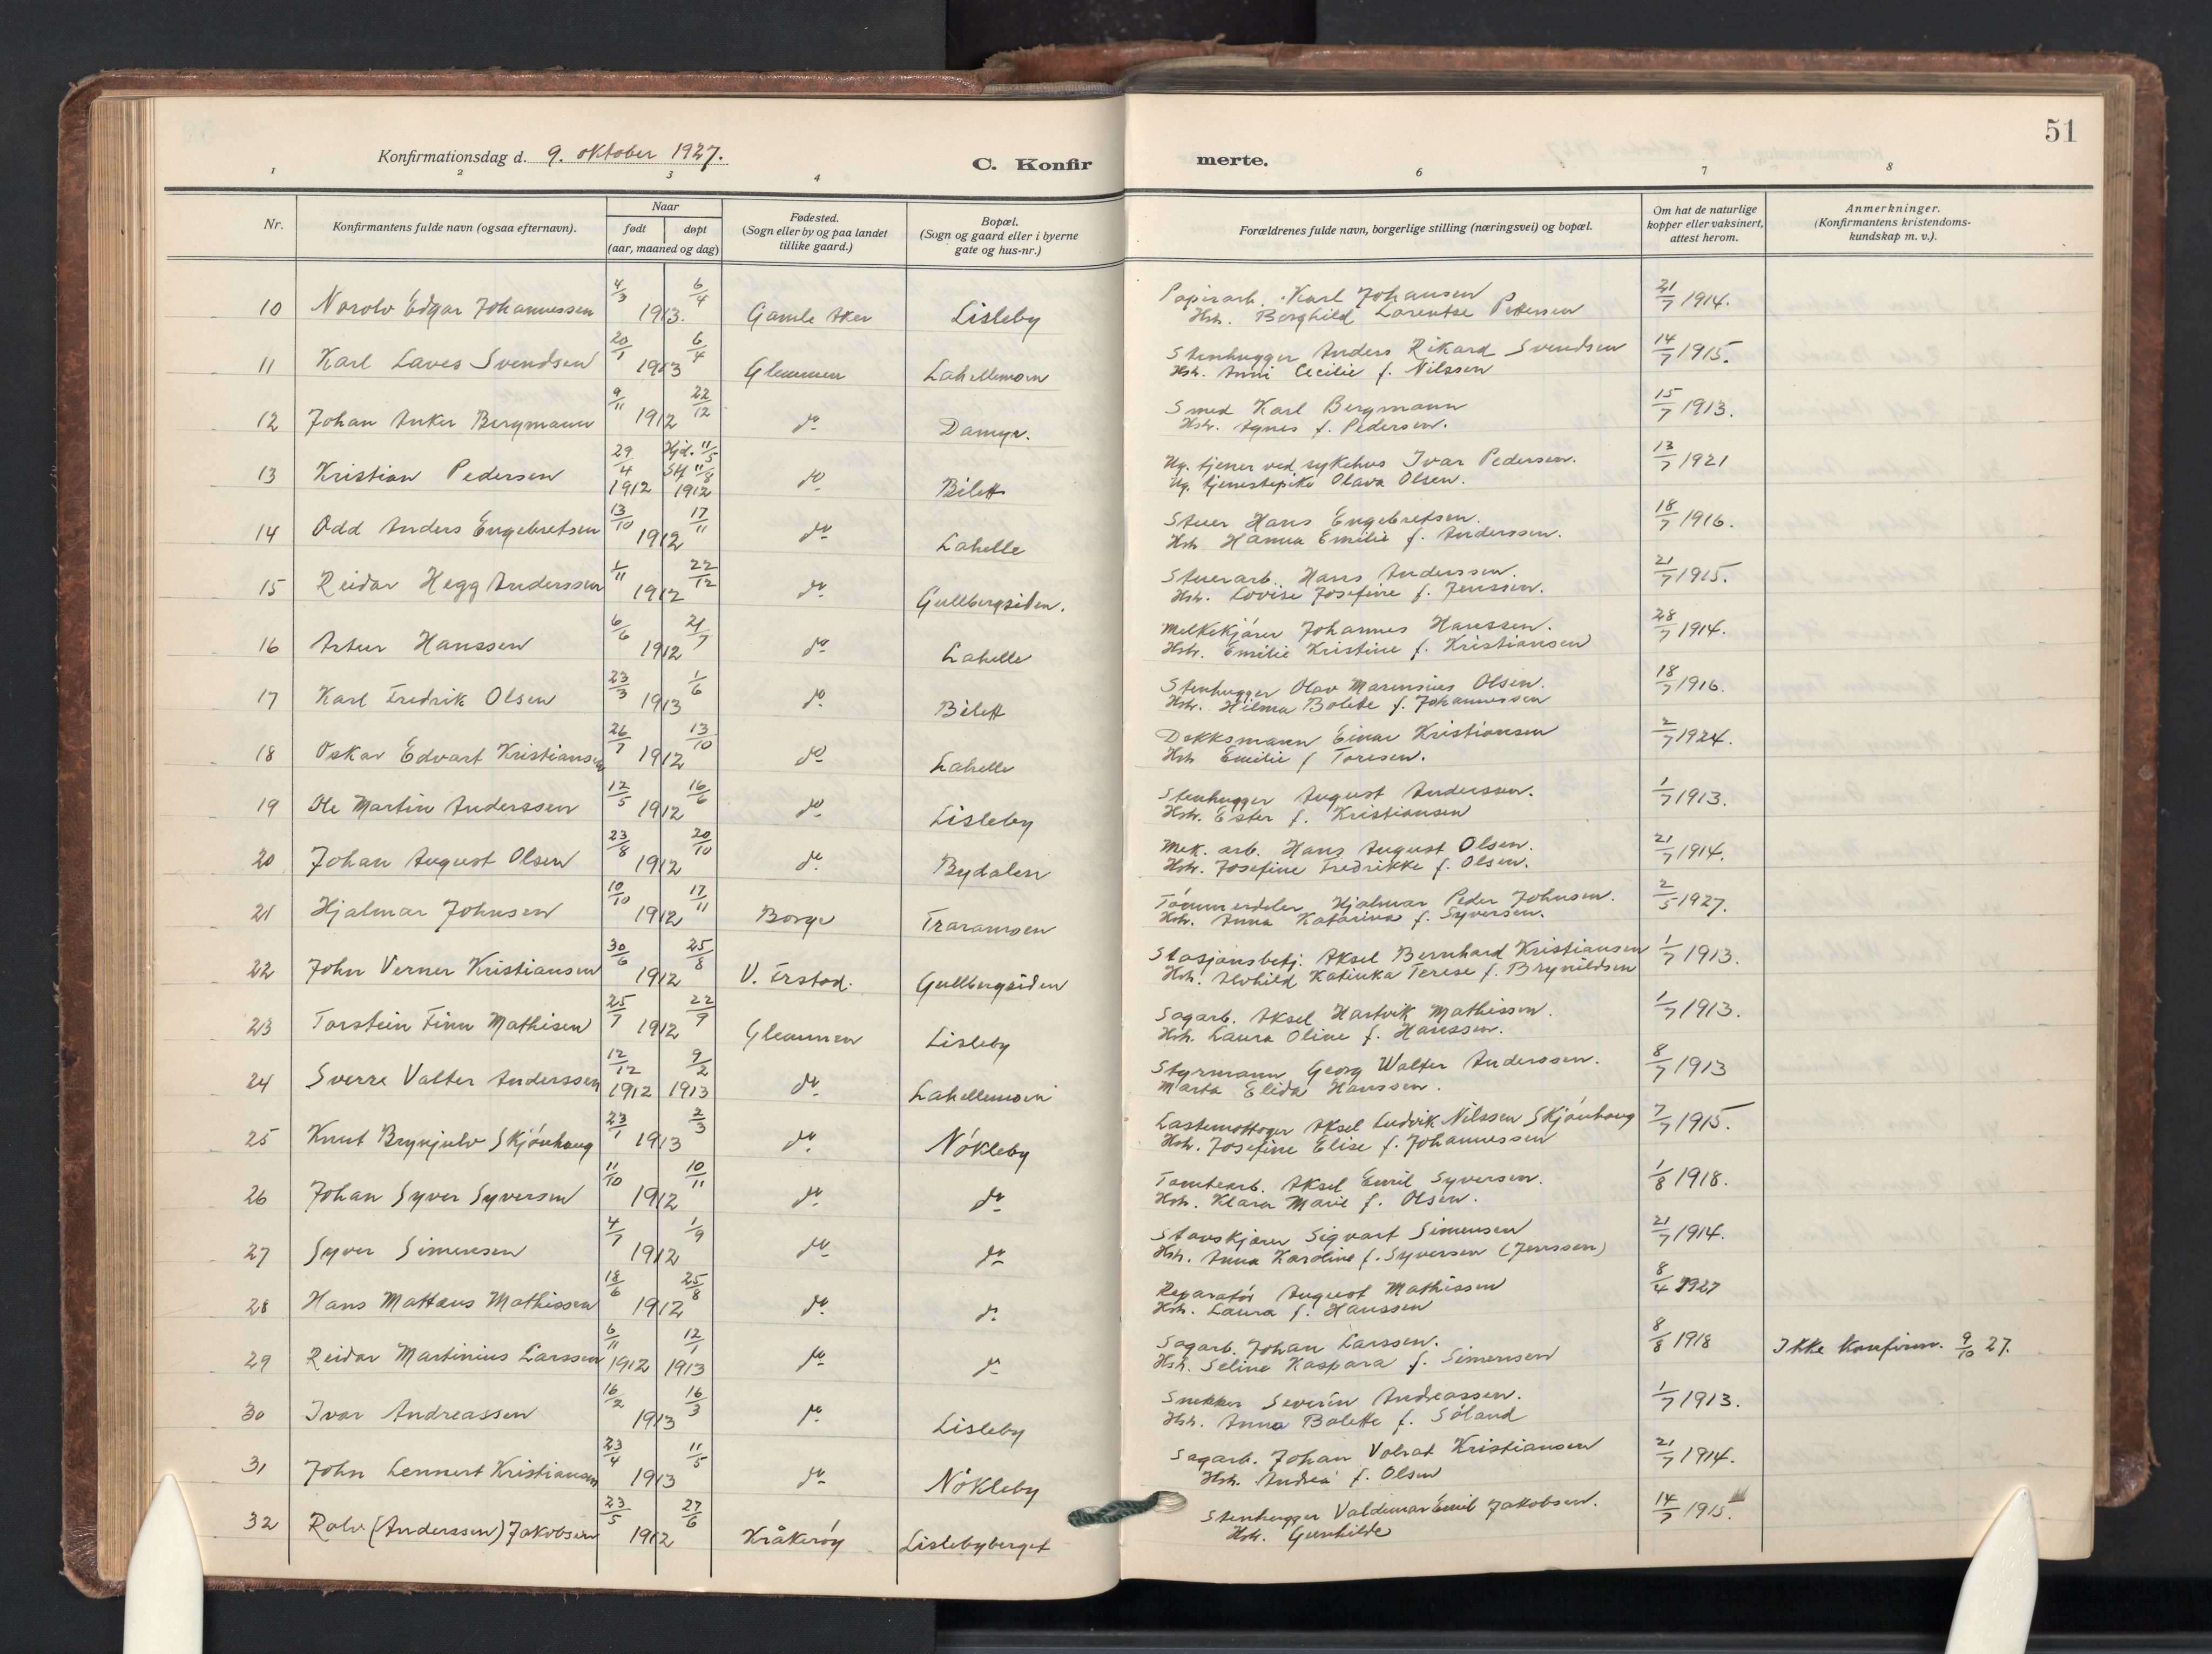 51
Konfirmationsdag d. 9. oktober 1927. C. Konfir merte.
1 2 3 4 6 7 8
Nr. Konfirmantens fulde navn (ogsaa efternavn). Naar født døpt (aar, maaned og dag) Fødested. (Sogn eller by og paa landet tillike gaard.) Bopæl. (Sogn og gaard eller i byerne gate og hus-nr.) Forældrenes fulde navn, borgerlige stilling (næringsvei) og bopæl. Om hat de naturlige kopper eller vaksinert, attest herom. Anmerkninger. (Konfirmantens kristendoms- kundskap m. v.).
10 Norolv Edgar Johannessen 4/3 6/4 1913. Gamle Aker Lisleby Papirarb. Karl Johansen 21/7 1914.
Hstr. Borghild Lorentse Pettersen
11 Karl Laves Svendsen 20/1 6/4 1913 Glemmen Lahellemoen Stenhugger Anders Rikard Svendsen 14/7 1915.
Hstr. Anni Cecilie f. Nilssen
12 Johan Anker Bergmann 9/11 22/12 1912 do Damyr. Smed Karl Bergmann 15/7 1913.
Hstr. Agnes f. Pedersen.
13 Kristian Pedersen 29/4 1912 Hjd. 11/5 St 11/8 1912 do Bilett Ug. tjener ved sykehus Ivar Pedersen. 13/7 1921
Ug. tjenestepike Olava Olsen.
14 Odd Anders Engebretsen 13/10 17/11 1912 do Lahelle Stuer Hans Engebretsen. 18/7 1916.
Hstr Hanna Emilie f. Anderssen.
15 Reidar Hegg Anderssen 1/11 22/12 1912 do Gullbergsiden. Stuerarb. Hans Anderssen. 21/7 1915.
Hstr. Lovise Josefine f. Jenssen.
16 Artur Hanssen 6/6 21/7 1912 do Lahelle Melkekjører Johannes Hanssen. 28/7 1914.
Hstr. Emilie Kristine f. Kristiansen
17 Karl Fredrik Olsen 23/3 1/6 1913 do Bilett Stenhugger Olav Marensius Olsen. 18/7 1916.
Hstr. Hilma Bolete f. Johannessen
18 Oskar Edvart Kristiansen 26/7 13/10 1912 do Lahelle Dekksmann Einar Kristiansen 2/7 1924.
Hstr Emilie f Toresen.
19 Ole Martin Anderssen 12/5 16/6 1912 do Lisleby Stenhugger August Anderssen. 1/7 1913.
Hstr. Ester f. Kristiansen
20 Johan August Olsen 23/8 20/10 1912 do Bydalen Mek. arb. Hans August Olsen. 21/7 1914.
Hstr. Josefine Fredrikke f. Olsen.
21 Hjalmar Johnsen 10/10 17/11 1912 Borge Traramoen Tømmerdeler Hjalmar Peder Johnsen. 2/5 1927.
Hstr. Anna Katarina f. Syversen.
22 John Verner Kristiansen 30/6 25/8 1912 V. Frstad. Gullbergsiden Stasjonsbetj. Aksel Bernhard Kristiansen 1/7 1913.
Hstr. Alvhild Katinka Terese f. Brynildsen
23 Torstein Finn Mathisen 25/7 22/9 1912 Glemmen Lisleby Sagarb. Aksel Hartvik Mathissen. 1/7 1913.
Hstr. Laura Oline f. Hanssen.
24 Sverre Valter Anderssen 12/12 1912 9/2 1913 do Lahellemoen Styrmann Georg Walter Anderssen. 8/7 1913
Marta Elida Hanssen.
25 Knut Brynjulv Skjønhaug 23/1 2/3 1913 do Nökleby Lastemottager Aksel Ludvik Nilssen Skjønhaug 7/7 1915.
Hstr. Josefine Elise f. Johannessen
26 Johan Syver Syversen 11/10 10/11 1912 do do Tomtearb. Aksel Emil Syversen. 1/8 1918.
Hstr. Klara Marie f. Olsen.
27 Syver Simensen 4/7 1/9 1912 do do Stavskjærer Sigvart Simensen 21/7 1914.
Hstr. Anna Karoline f. Syversen (Jenssen)
28 Hans Mattæus Mathissen 18/6 25/8 1912 do do Reparatør August Mathissen 8/4 1927
Hstr. Laura f. Hanssen
29 Reidar Martinius Larssen 6/11 1912 12/1 1913 do do Sagarb. Johan Larssen. 8/8 1918 Ikke konfirm. 9/10 27.
Hstr. Seline Kaspara f. Simensen
30 Ivar Andreassen 16/2 16/3 1913 do Lisleby Snekker Severin Andreassen. 1/7 1913.
Hstr. Anna Bolette f. Söland
31 John Lennert Kristiansen 23/4 11/5 1913 do Nökleby Sagarb. Johan Volrat Kristiansen 21/7 1914.
Hstr. Andrea f. Olsen
32 Rolv (Anderssen) Jakobsen 23/5 27/6 1912 Kråkeröy Lislebyberget Stenhugger Valdemar Emil Jakobsen. 14/7 1915.
Hstr. Gunhilde